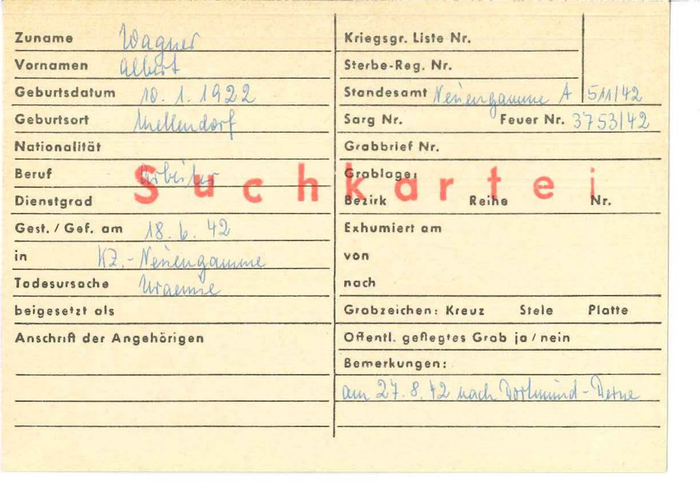 Zuname Wagner
Vornamen Albert
Geburtsdatum 10.1.1922
Geburtsort Mellendorf
Nationalität
Beruf Arbeiter
Dienstgrad
Gest./Gef. am 18.6.42
in KZ.-Neuengamme
Todesursache Uraemie
beigesetzt als
Anschrift der Angehörigen
Suchkartei
Kriegsgr. Liste Nr.
Sterbe-Reg. Nr.
Standesamt Neuengamme A 511/42
Sarg Nr. Feuer Nr. 3753/42
Grabbrief Nr.
Grablage:
Bezirk Reihe Nr.
Exhumiert am
von
nach
Grabzeichen: Kreuz Stele Platte
Öffentl. gepflegtes Grab ja/nein
Bemerkungen:
am 27.8.42 nach Dortmund-Derne